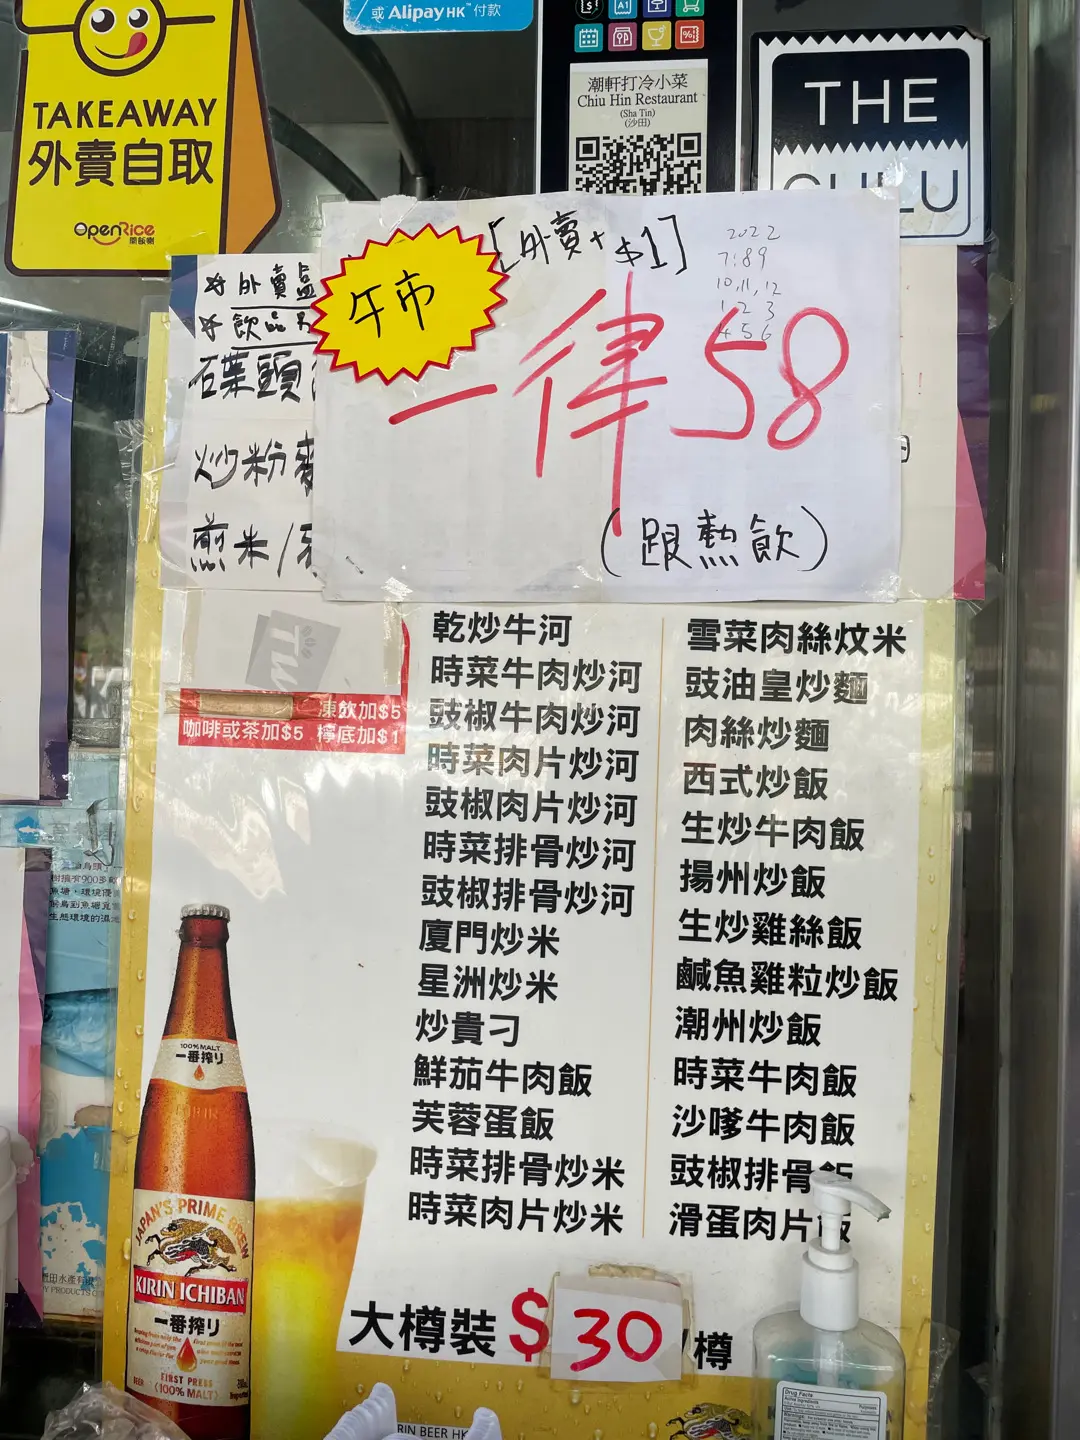 或 Alipay HK 付款
TAKEAWAY
外賣自取
OpenRice
開飯喇
潮軒打冷小菜
Chiu Hin Restaurant
(Sha Tin)
(沙田)
THE
GULU
[外賣+$1]
2022
7.89
10,11,12
1 2 3
4 5 6
午市
一律58
(跟熱飲)
外賣盒
飲品
炒粉
煎米/
凍飲加$5
咖啡或茶加$5 檸底加$1
乾炒牛河
時菜牛肉炒河
豉椒牛肉炒河
時菜肉片炒河
豉椒肉片炒河
時菜排骨炒河
豉椒排骨炒河
廈門炒米
星洲炒米
炒貴刁
鮮茄牛肉飯
芙蓉蛋飯
時菜排骨炒米
時菜肉片炒米
雪菜肉絲炆米
豉油皇炒麵
肉絲炒麵
西式炒飯
生炒牛肉飯
揚州炒飯
生炒雞絲飯
鹹魚雞粒炒飯
潮州炒飯
時菜牛肉飯
沙嗲牛肉飯
豉椒排骨飯
滑蛋肉片飯
大樽裝 $30/樽
100% MALT
一番搾り
JAPAN'S PRIME BREW
KIRIN ICHIBAN
一番搾り
FIRST PRESS
(100% MALT)
RIN BEER HK
Drug Facts